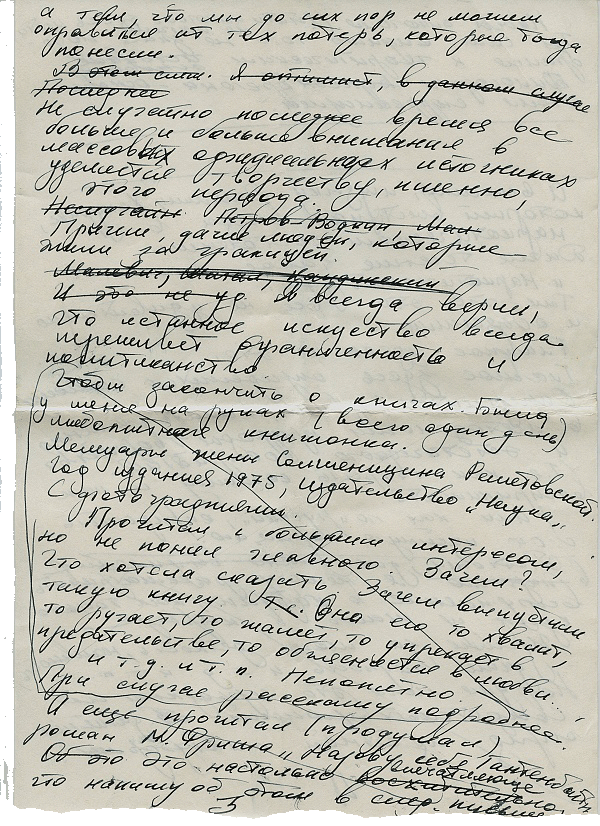 а тем, что мы до сих пор не можем
оправиться от тех потерь, которые тогда
понесли.
В этом сил. Я оптимист, в данном случае
Последнее
Не случайно последнее время все
больше и больше внимания в
массовых официальных источниках
уделяется творчеству, именно,
этого периода.
Неслучайн. Петров-Водкин, Мал
Причем, даже людей, которые
жили за границей.
Малевич, Шагал, Кандинский
И это не уд. Я всегда верил,
что истинное искусство всегда
переживет ограниченность и
политиканство.
Чтобы закончить о книгах. Была
у меня на руках (всего один день)
любопытная книжонка.
Мемуары жены Солженицина Решетовской.
Год издания 1975, издательство "Наука"
С фотографиями.
Прочитал с большим интересом,
но не понял главного. Зачем?
Что хотела сказать. Зачем выпустили
такую книгу. Т.е. Она его то хвалит,
то ругает, то жалеет, то упрекает в
предательстве, то объясняется в любви...
и т.д. и т.п. Непонятно.
При случае расскажу подробнее.
А еще прочитал (продумал)
роман М. Фриша "Назову себя Гантенбайн"
Об это это настолько впечатляюще восхитительно,
что напишу об этом в след. письме
3